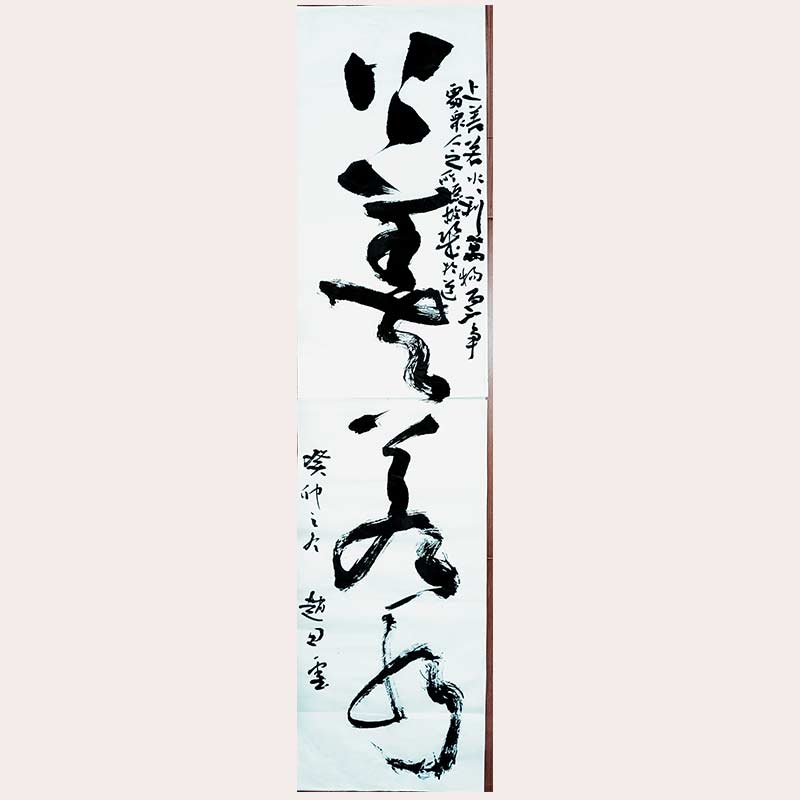 上善若水〻利萬物而不争
處衆人之所惡故幾於道
上善若水
癸卯之冬 趙